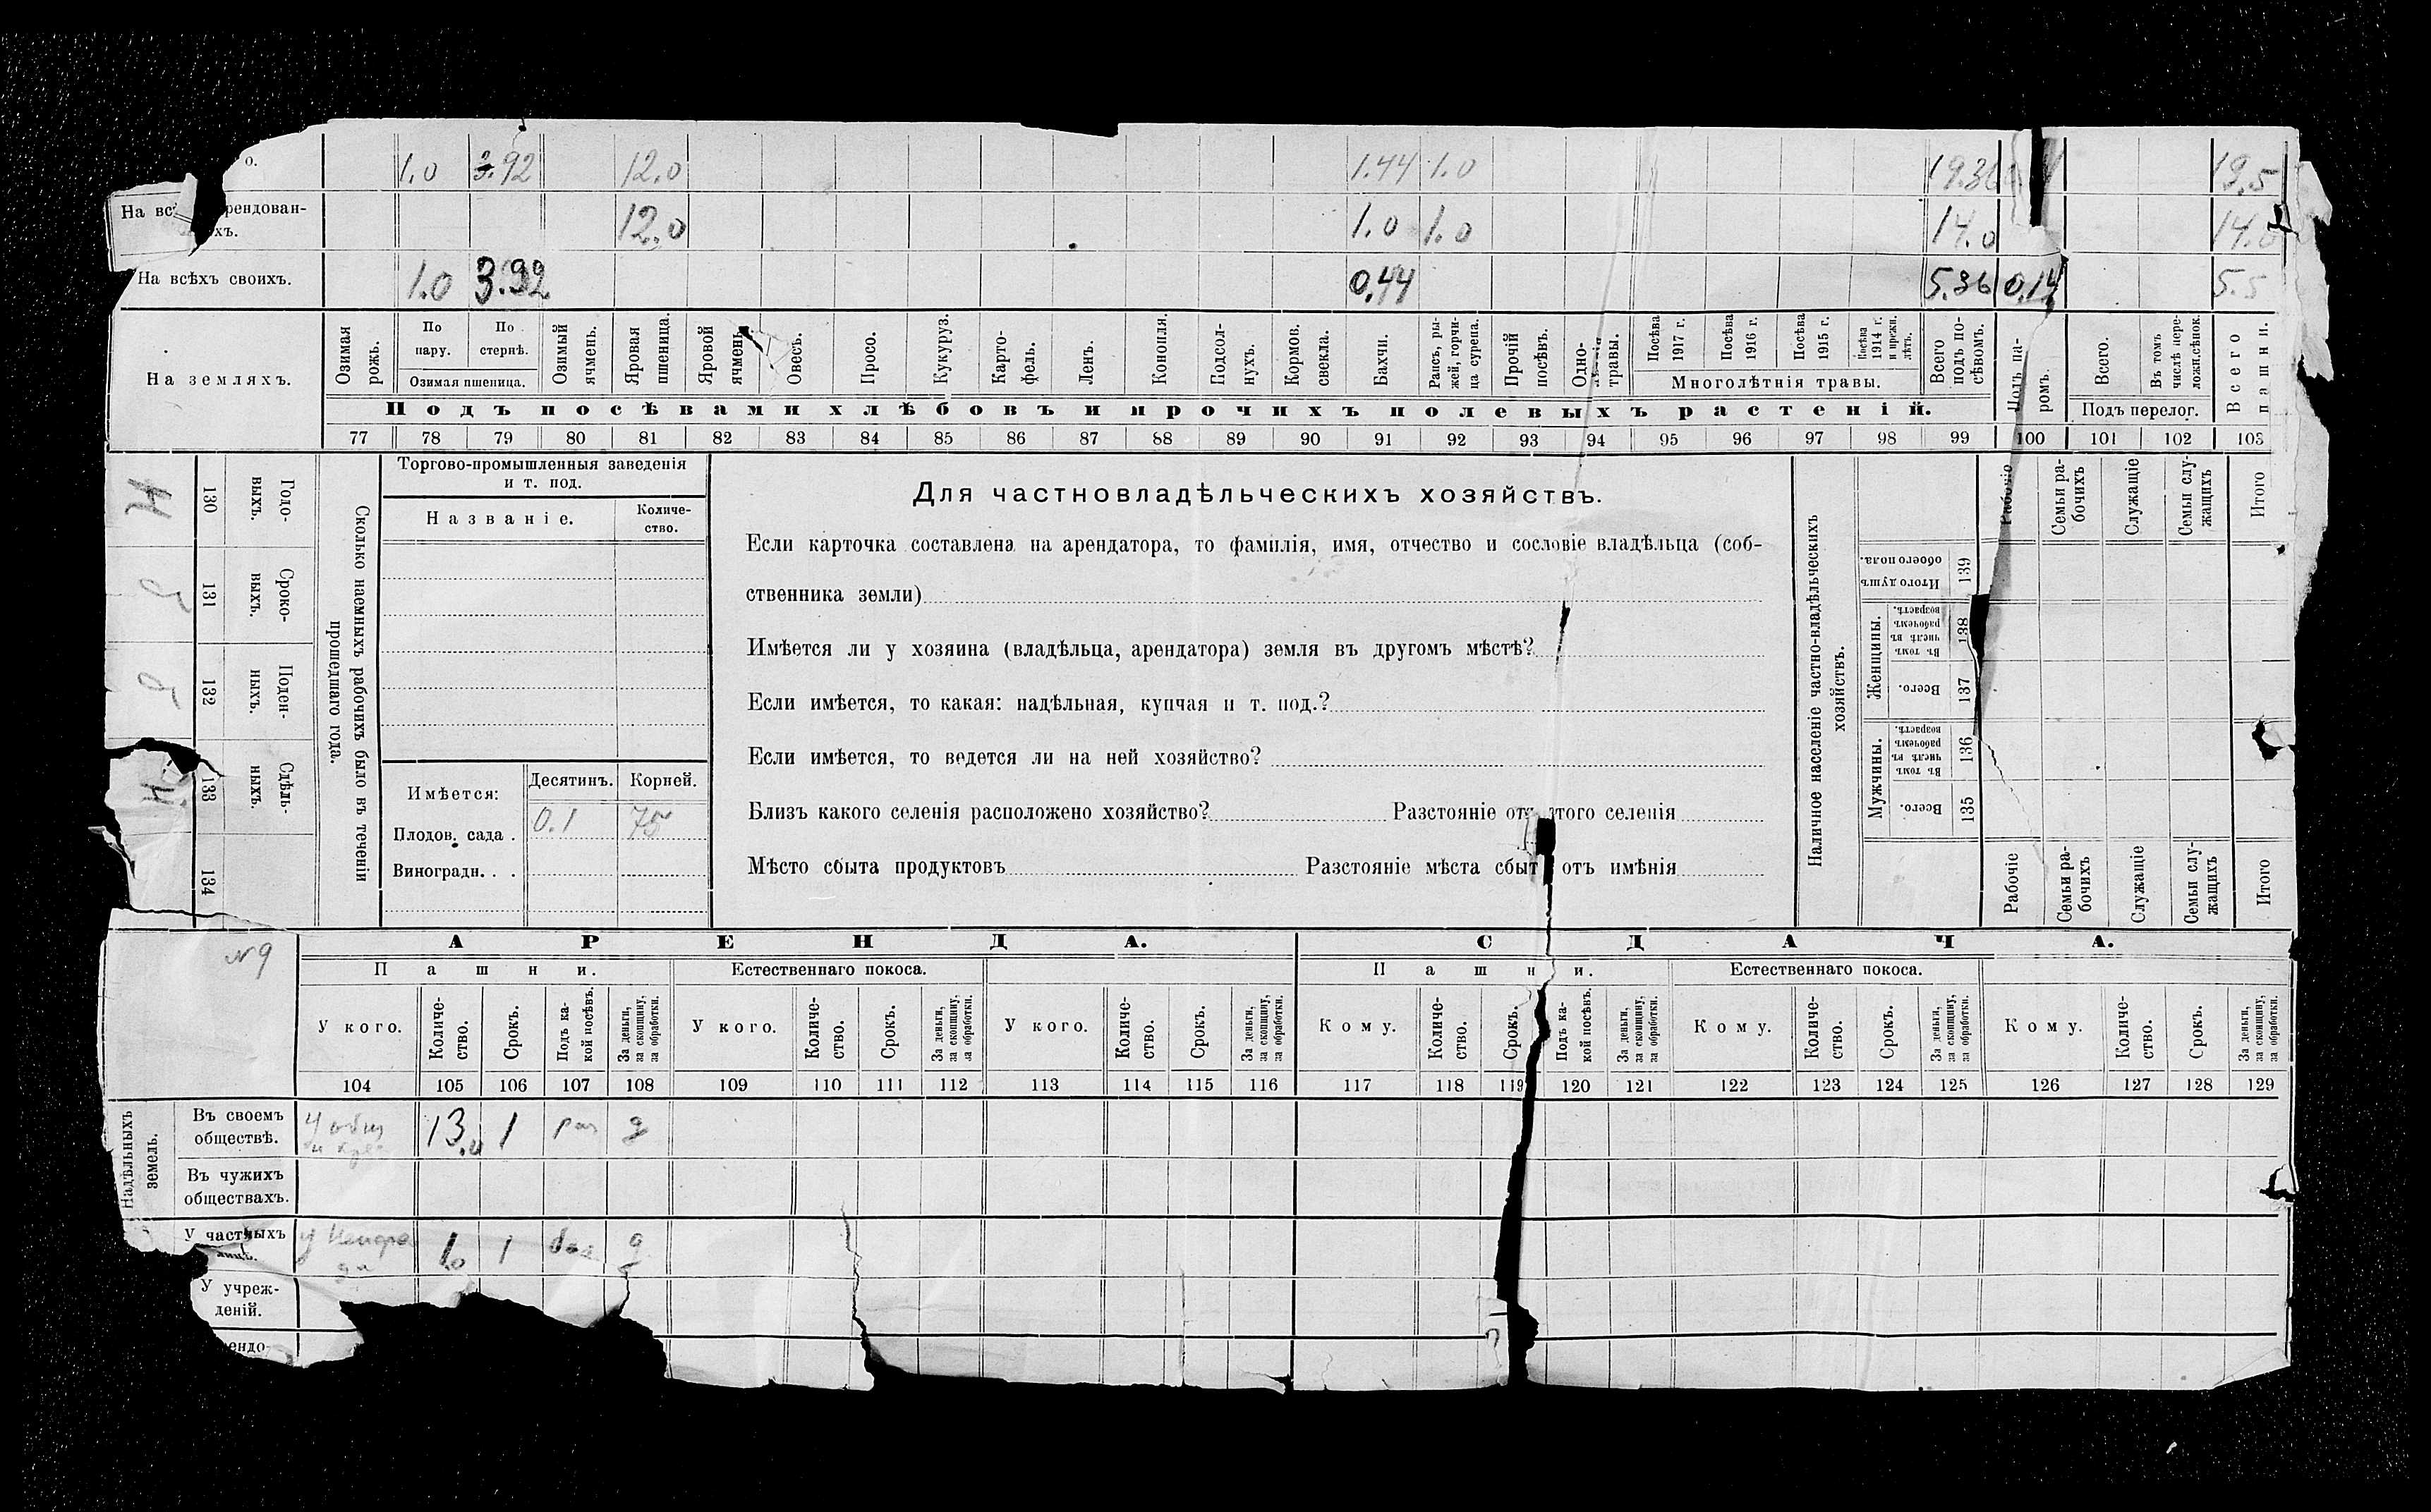 о. 1.0 3.92 12.0 1.44 1.0 19.36 19.5
На рендован-
хъ. 12.0 1.0 1.0 14.0 14.0
На всѣхъ своихъ. 1.0 3.92 0.44 5.36 0.14 5.5
На земляхъ.
Озимая рожь.
По пару.
По стернѣ.
Озимая пшеница.
Озимый ячмень.
Яровая пшеница.
Яровой ячмень.
Овесъ.
Просо.
Кукуруз.
Карто-
фель.
Ленъ.
Конопля.
Подсол-
нухъ.
Кормов. свекла.
Бахчи.
Рапсъ, ры-
жей, горчи-
ца сурепа.
Прочій посѣвъ.
Одно-
травы.
Посѣва 1917 г.
Посѣва 1916 г.
Посѣва 1915 г.
Посѣва 1914 г. и прежн. лѣтъ.
Многолѣтнія травы.
Всего подъ по-
сѣвомъ.
Подъ па-
ромъ.
Всего.
Въ томъ числѣ пере-
ложн.сѣнок.
Подъ перелог.
Всего пашни.
Подъ посѣвами хлѣбовъ и прочихъ полевыхъ растеній.
77 78 79 80 81 82 83 84 85 86 87 88 89 90 91 92 93 94 95 96 97 98 99 100 101 102 103
130 Годо-
выхъ.
131 Сроко-
выхъ.
132 Поден-
ныхъ.
133 Сдѣль-
ныхъ.
134
Сколько наемныхъ рабочихъ было въ теченіи
прошедшаго года.
Торгово-промышленныя заведенія
и т. под.
Названіе.
Количе-
ство.
Имѣется: Десятинъ. Корней.
Плодов. сада . 0.1 75
Виноградн. . .
Для частновладѣльческихъ хозяйствъ.
Если карточка составлена на арендатора, то фамилія, имя, отчество и сословіе владѣльца (соб-
ственника земли)
Имѣется ли у хозяина (владѣльца, арендатора) земля въ другомъ мѣстѣ?
Если имѣется, то какая: надѣльная, купчая и т. под.?
Если имѣется, то ведется ли на ней хозяйство?
Близъ какого селенія расположено хозяйство? Разстояніе отъ этого селенія
Мѣсто сбыта продуктовъ Разстояніе мѣста сбыт отъ имѣнія
Наличное населеніе частно-владѣльческихъ
хозяйствъ.
Рабочіе
Семьи ра-
бочихъ
Служащіе
Семьи слу-
жащихъ
Итого
Итого душъ обоего пола. 139
Женщины.
Въ томъ числѣ въ рабочемъ возрастѣ. 138
Всего. 137
Мужчины.
Въ томъ числѣ въ рабочемъ возрастѣ. 136
Всего. 135
Рабочіе
Семьи ра-
бочихъ
Служащіе
Семьи слу-
жащихъ
Итого
№9
АРЕНДА. СДАЧА.
Пашни. Естественнаго покоса. Пашни. Естественнаго покоса.
У кого.
Количе-
ство.
Срокъ.
Подъ ка-
кой посѣвъ.
За деньги, за скопщину, за обработки.
У кого.
Количе-
ство.
Срокъ.
За деньги, за скопщину, за обработки.
У кого.
Количе-
ство.
Срокъ.
За деньги, за скопщину, за обработки.
Кому.
Количе-
ство.
Срокъ.
Подъ ка-
кой посѣвъ.
За деньги, за скопщину, за обработки.
Кому.
Количе-
ство.
Срокъ.
За деньги, за скопщину, за обработки.
Кому.
Количе-
ство.
Срокъ.
За деньги, за скопщину, за обработки.
104 105 106 107 108 109 110 111 112 113 114 115 116 117 118 119 120 121 122 123 124 125 126 127 128 129
Надѣльныхъ
земель.
Въ своемъ
обществѣ. 13.0 1 д
Въ чужихъ
обществахъ.
У частныхъ
1.0 1 д
У учреж-
деній.
ендо-